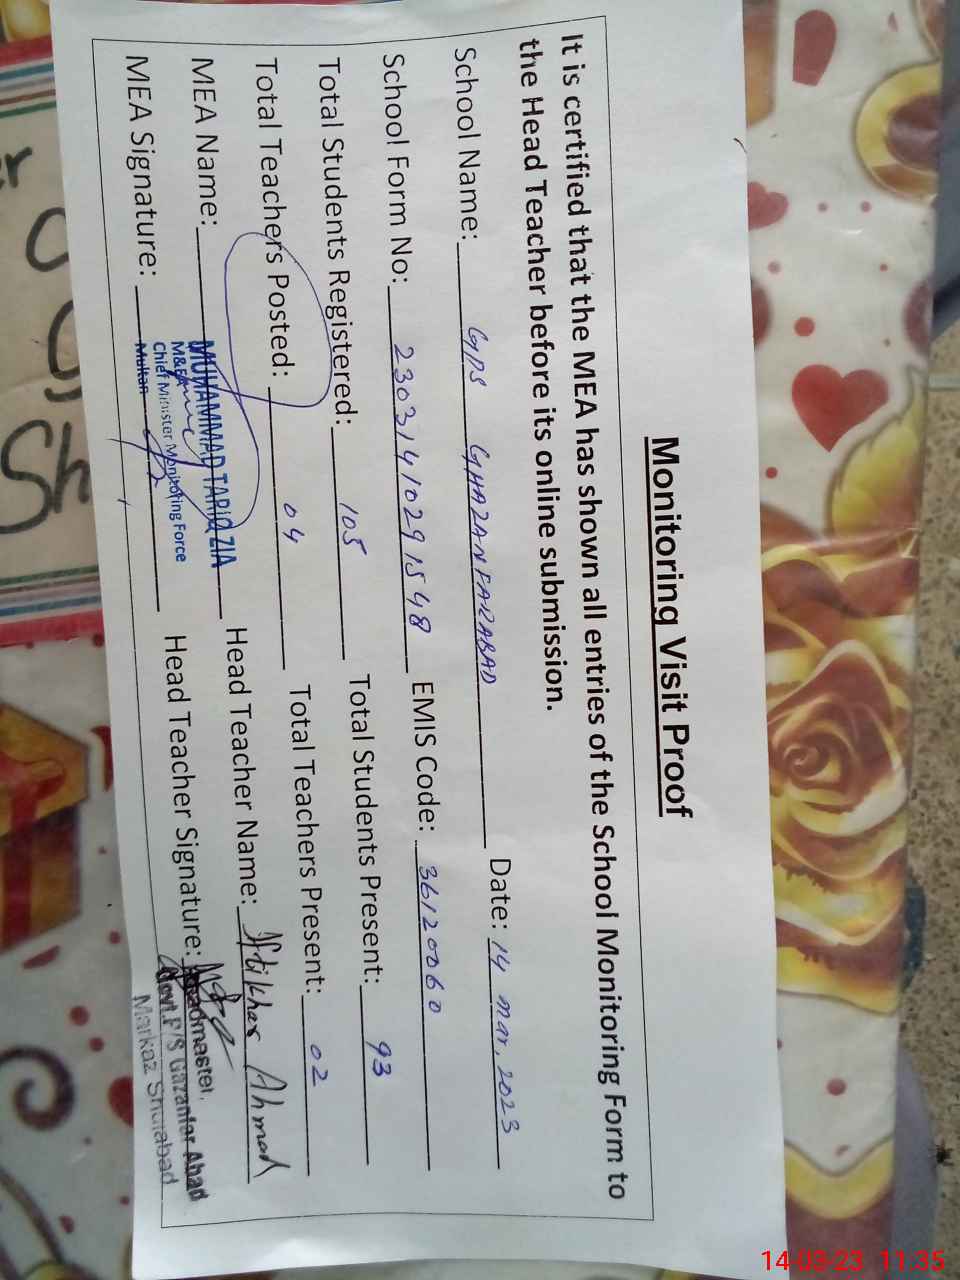 Monitoring Visit Proof
It is certified that the MEA has shown all entries of the School Monitoring Form to
the Head Teacher before its online submission.
School Name: GPS GHAZANFARABAD Date: 14 mar, 2023
School Form No: 23031410291548 EMIS Code: 36120060
Total Students Registered: 105 Total Students Present: 93
Total Teachers Posted: 04 Total Teachers Present: 02
MEA Name: MUHAMMAD TARIQ ZIA Head Teacher Name: Iftikhar Ahmad
MEA Signature: Head Teacher Signature:
M&EA
Chief Minister Monitoring Force
Multan
Headmaster,
Govt. P/S Gazanfar Abad
Markaz Shujabad
Sh
14-03-23 11:35